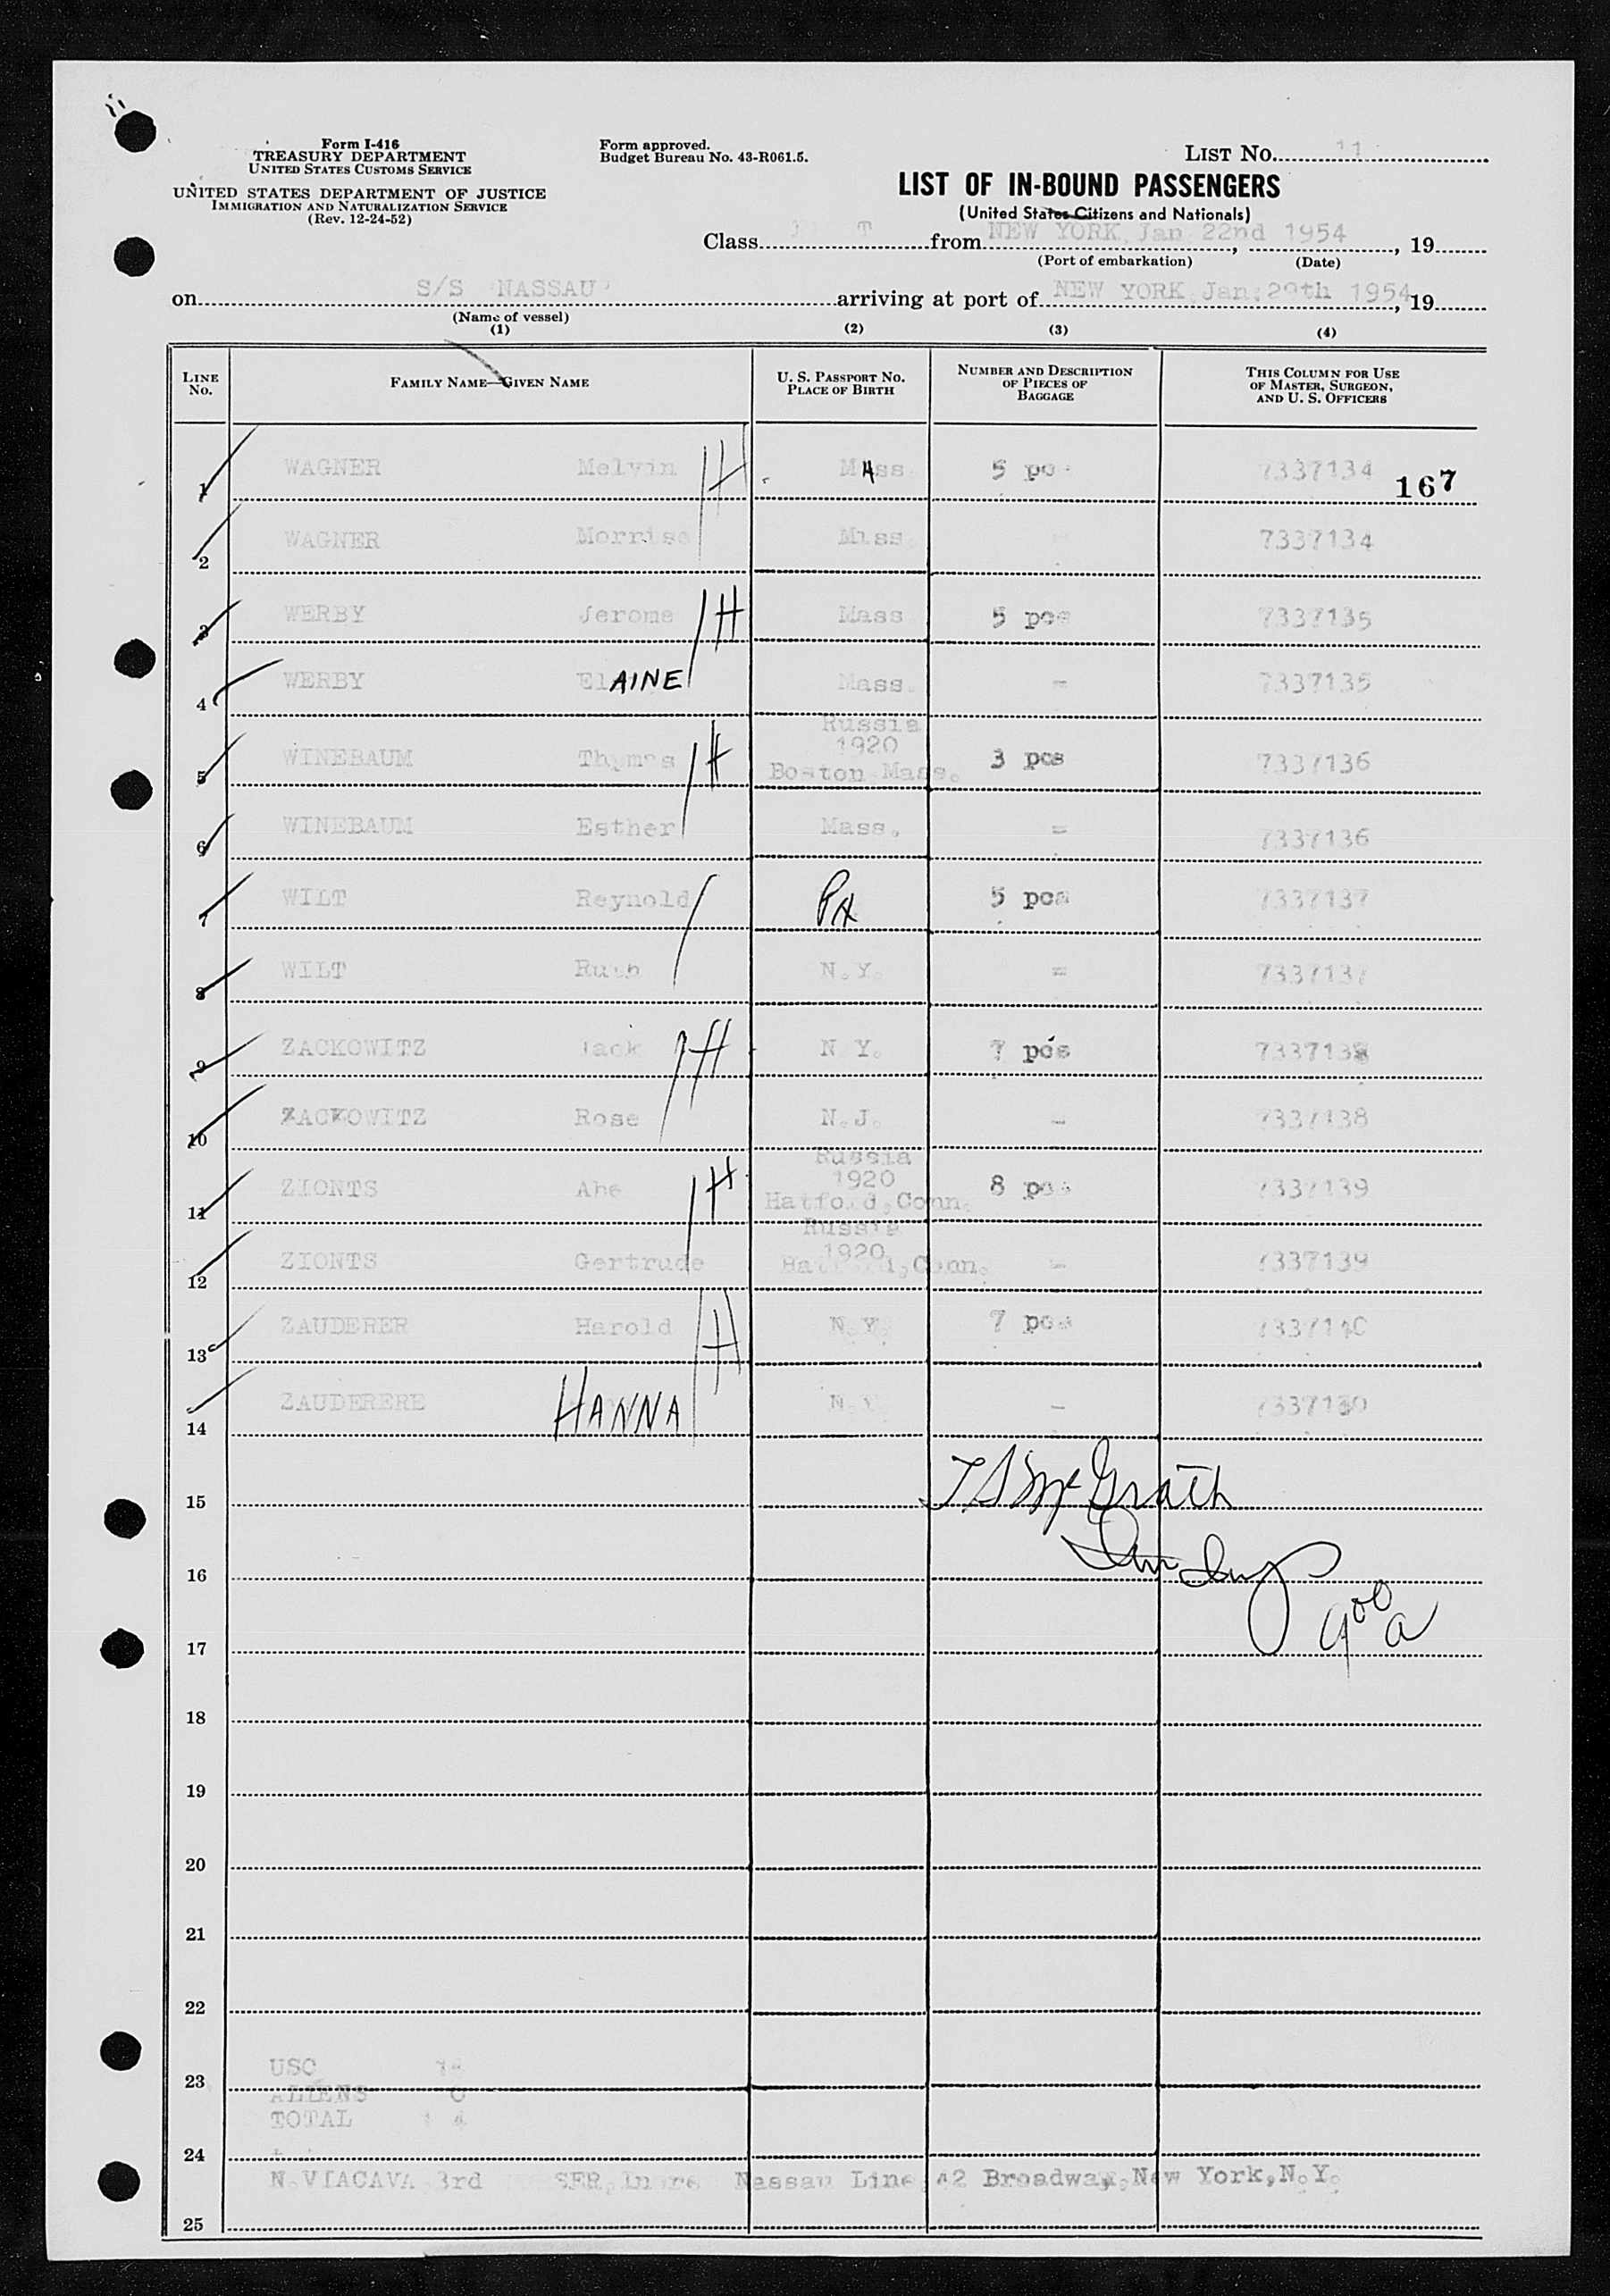 Form I-416
TREASURY DEPARTMENT
UNITED STATES CUSTOMS SERVICE
UNITED STATES DEPARTMENT OF JUSTICE
IMMIGRATION AND NATURALIZATION SERVICE
(Rev. 12-24-52)
Form approved.
Budget Bureau No. 43-R061.5.
LIST No. 11
LIST OF IN-BOUND PASSENGERS
(United States Citizens and Nationals)
Class T from NEW YORK, Jan 22nd 1954, 19
(Port of embarkation) (Date)
on S/S NASSAU arriving at port of NEW YORK, Jan. 29th 1954, 19
(Name of vessel)
(1) (2) (3) (4)
LINE No. FAMILY NAME—GIVEN NAME U. S. PASSPORT NO. PLACE OF BIRTH NUMBER AND DESCRIPTION OF PIECES OF BAGGAGE THIS COLUMN FOR USE OF MASTER, SURGEON, AND U. S. OFFICERS
1 WAGNER Melvin H Mass 5 pcs 7337134 167
2 WAGNER Mass. 7337134
3 WERBY Jerome H Mass 5 pcs 7337135
4 WERBY ElAINE Mass. = 7337135
Russia
1920
5 WINEBAUM H Boston Mass. 3 pcs 7337136
6 WINEBAUM Esther Mass. = 7337136
7 WILT Reynold PA 5 pcs 7337137
8 WILT Ruth N.Y. = 7337137
9 ZACKOWITZ Jack H N Y. 7 pcs 7337138
10 ZACKOWITZ Rose N.J. - 7337138
Russia
1920
11 ZIONTS Abe H Hatford, Conn. 8 pcs 7337139
Russia
1920
12 ZIONTS Gertrude Hatford, Conn. - 7337139
13 ZAUDERER Harold H N.Y. 7 pcs 7337140
14 ZAUDERERE HANNA N.Y - 7337140
15 McGrath
16
17 9 00 a
18
19
20
21
22
USC 14
23 ALIENS 0
TOTAL 14
24
N.VIACAVA 3rd Nassau Line 42 Broadway, New York, N.Y.
25